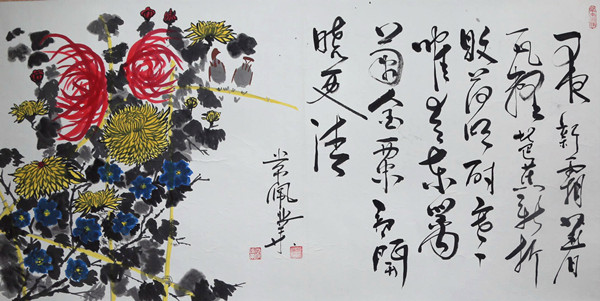 一夜新霜著
瓦輕芭蕉新折
敗荷倾耐寒
唯有东篱
菊金粟初開
晓更清